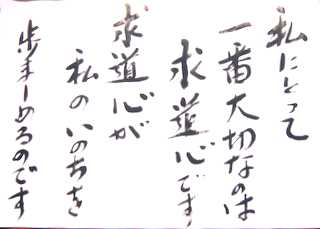 私にとって
一番大切なのは
求道心です
求道心が
私のいのちを
歩ましめるのです